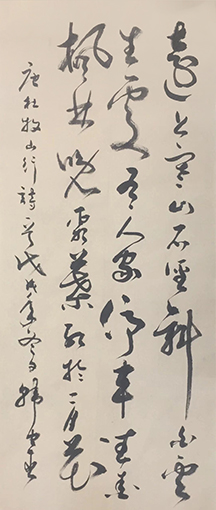 遠上寒山石徑斜白雲
生處有人家停車坐愛
楓林晚霜葉紅於二月花
唐杜牧山行詩一首戊戌年冬韓